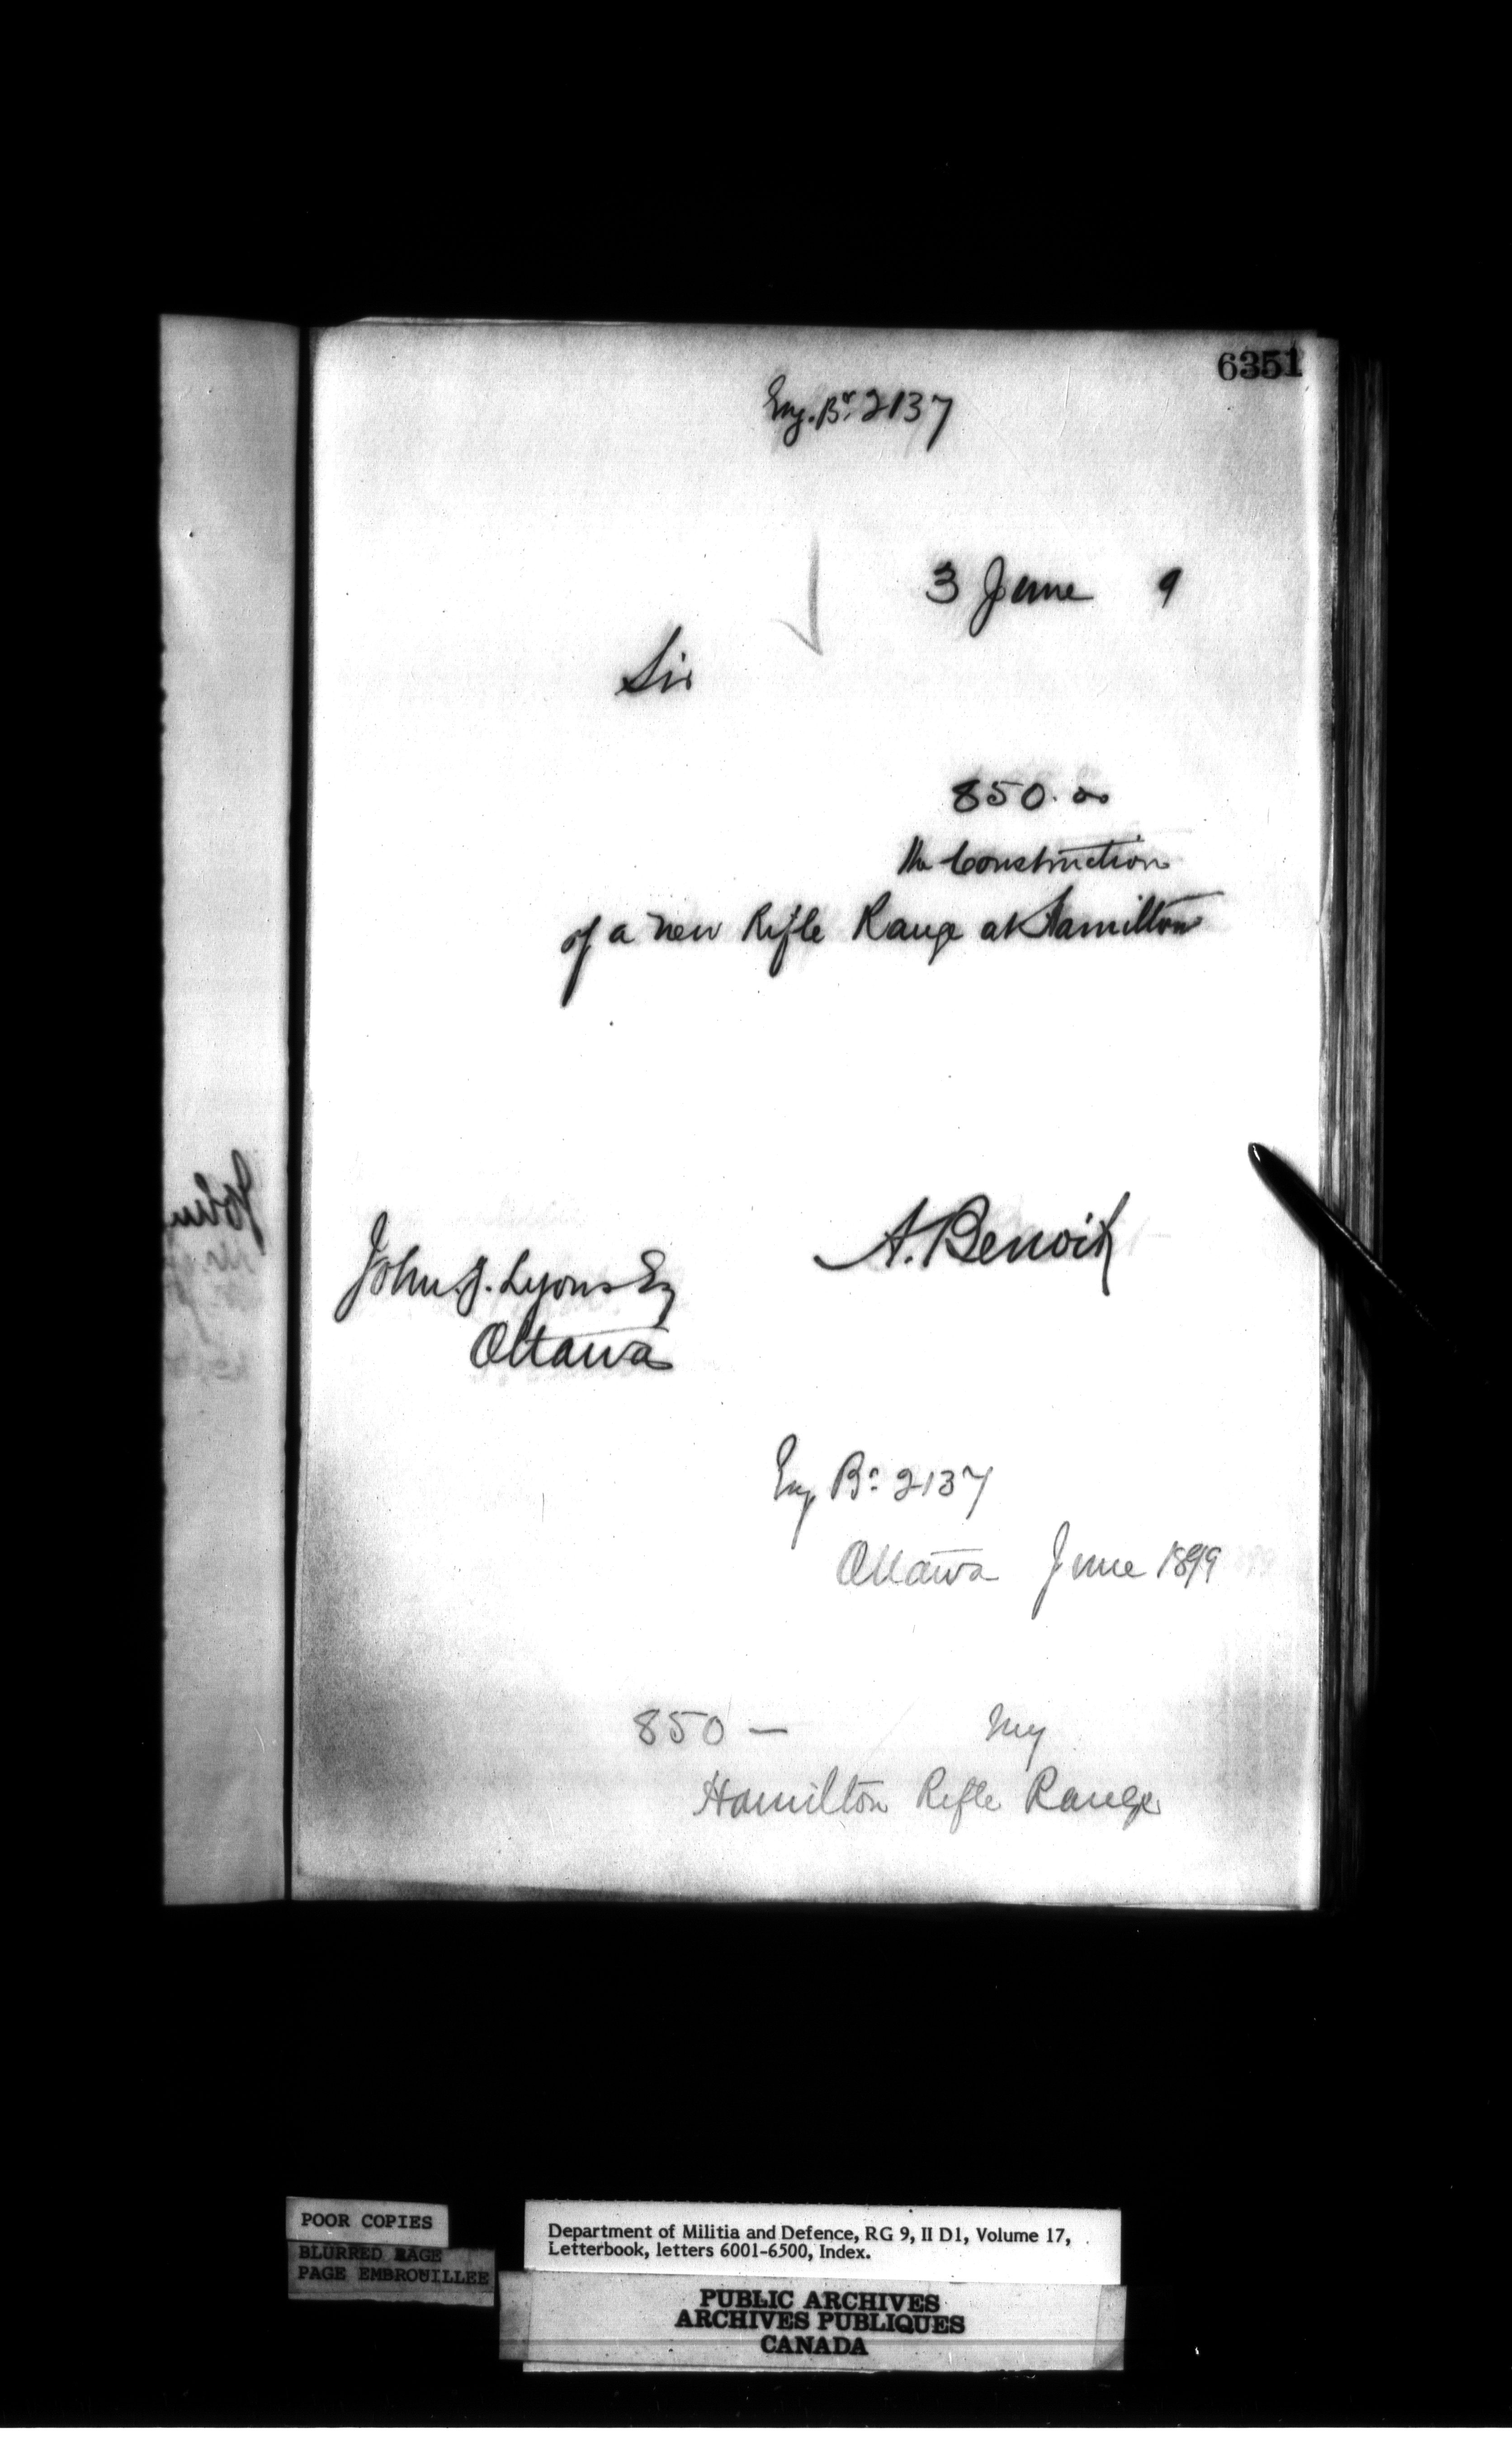 6351
Eng. Br. 2137
3 June 9
Sir
850.00
the Construction
of a new Rifle Range at Hamilton
A. Benoit
John J. Lyons Esq
Ottawa
Eng Br 2137
Ottawa June 1899
850 — my
Hamilton Rifle Range
POOR COPIES
BLURRED PAGE
PAGE EMBROUILLEE
Department of Militia and Defence, RG 9, II D1, Volume 17,
Letterbook, letters 6001-6500, Index.
PUBLIC ARCHIVES
ARCHIVES PUBLIQUES
CANADA